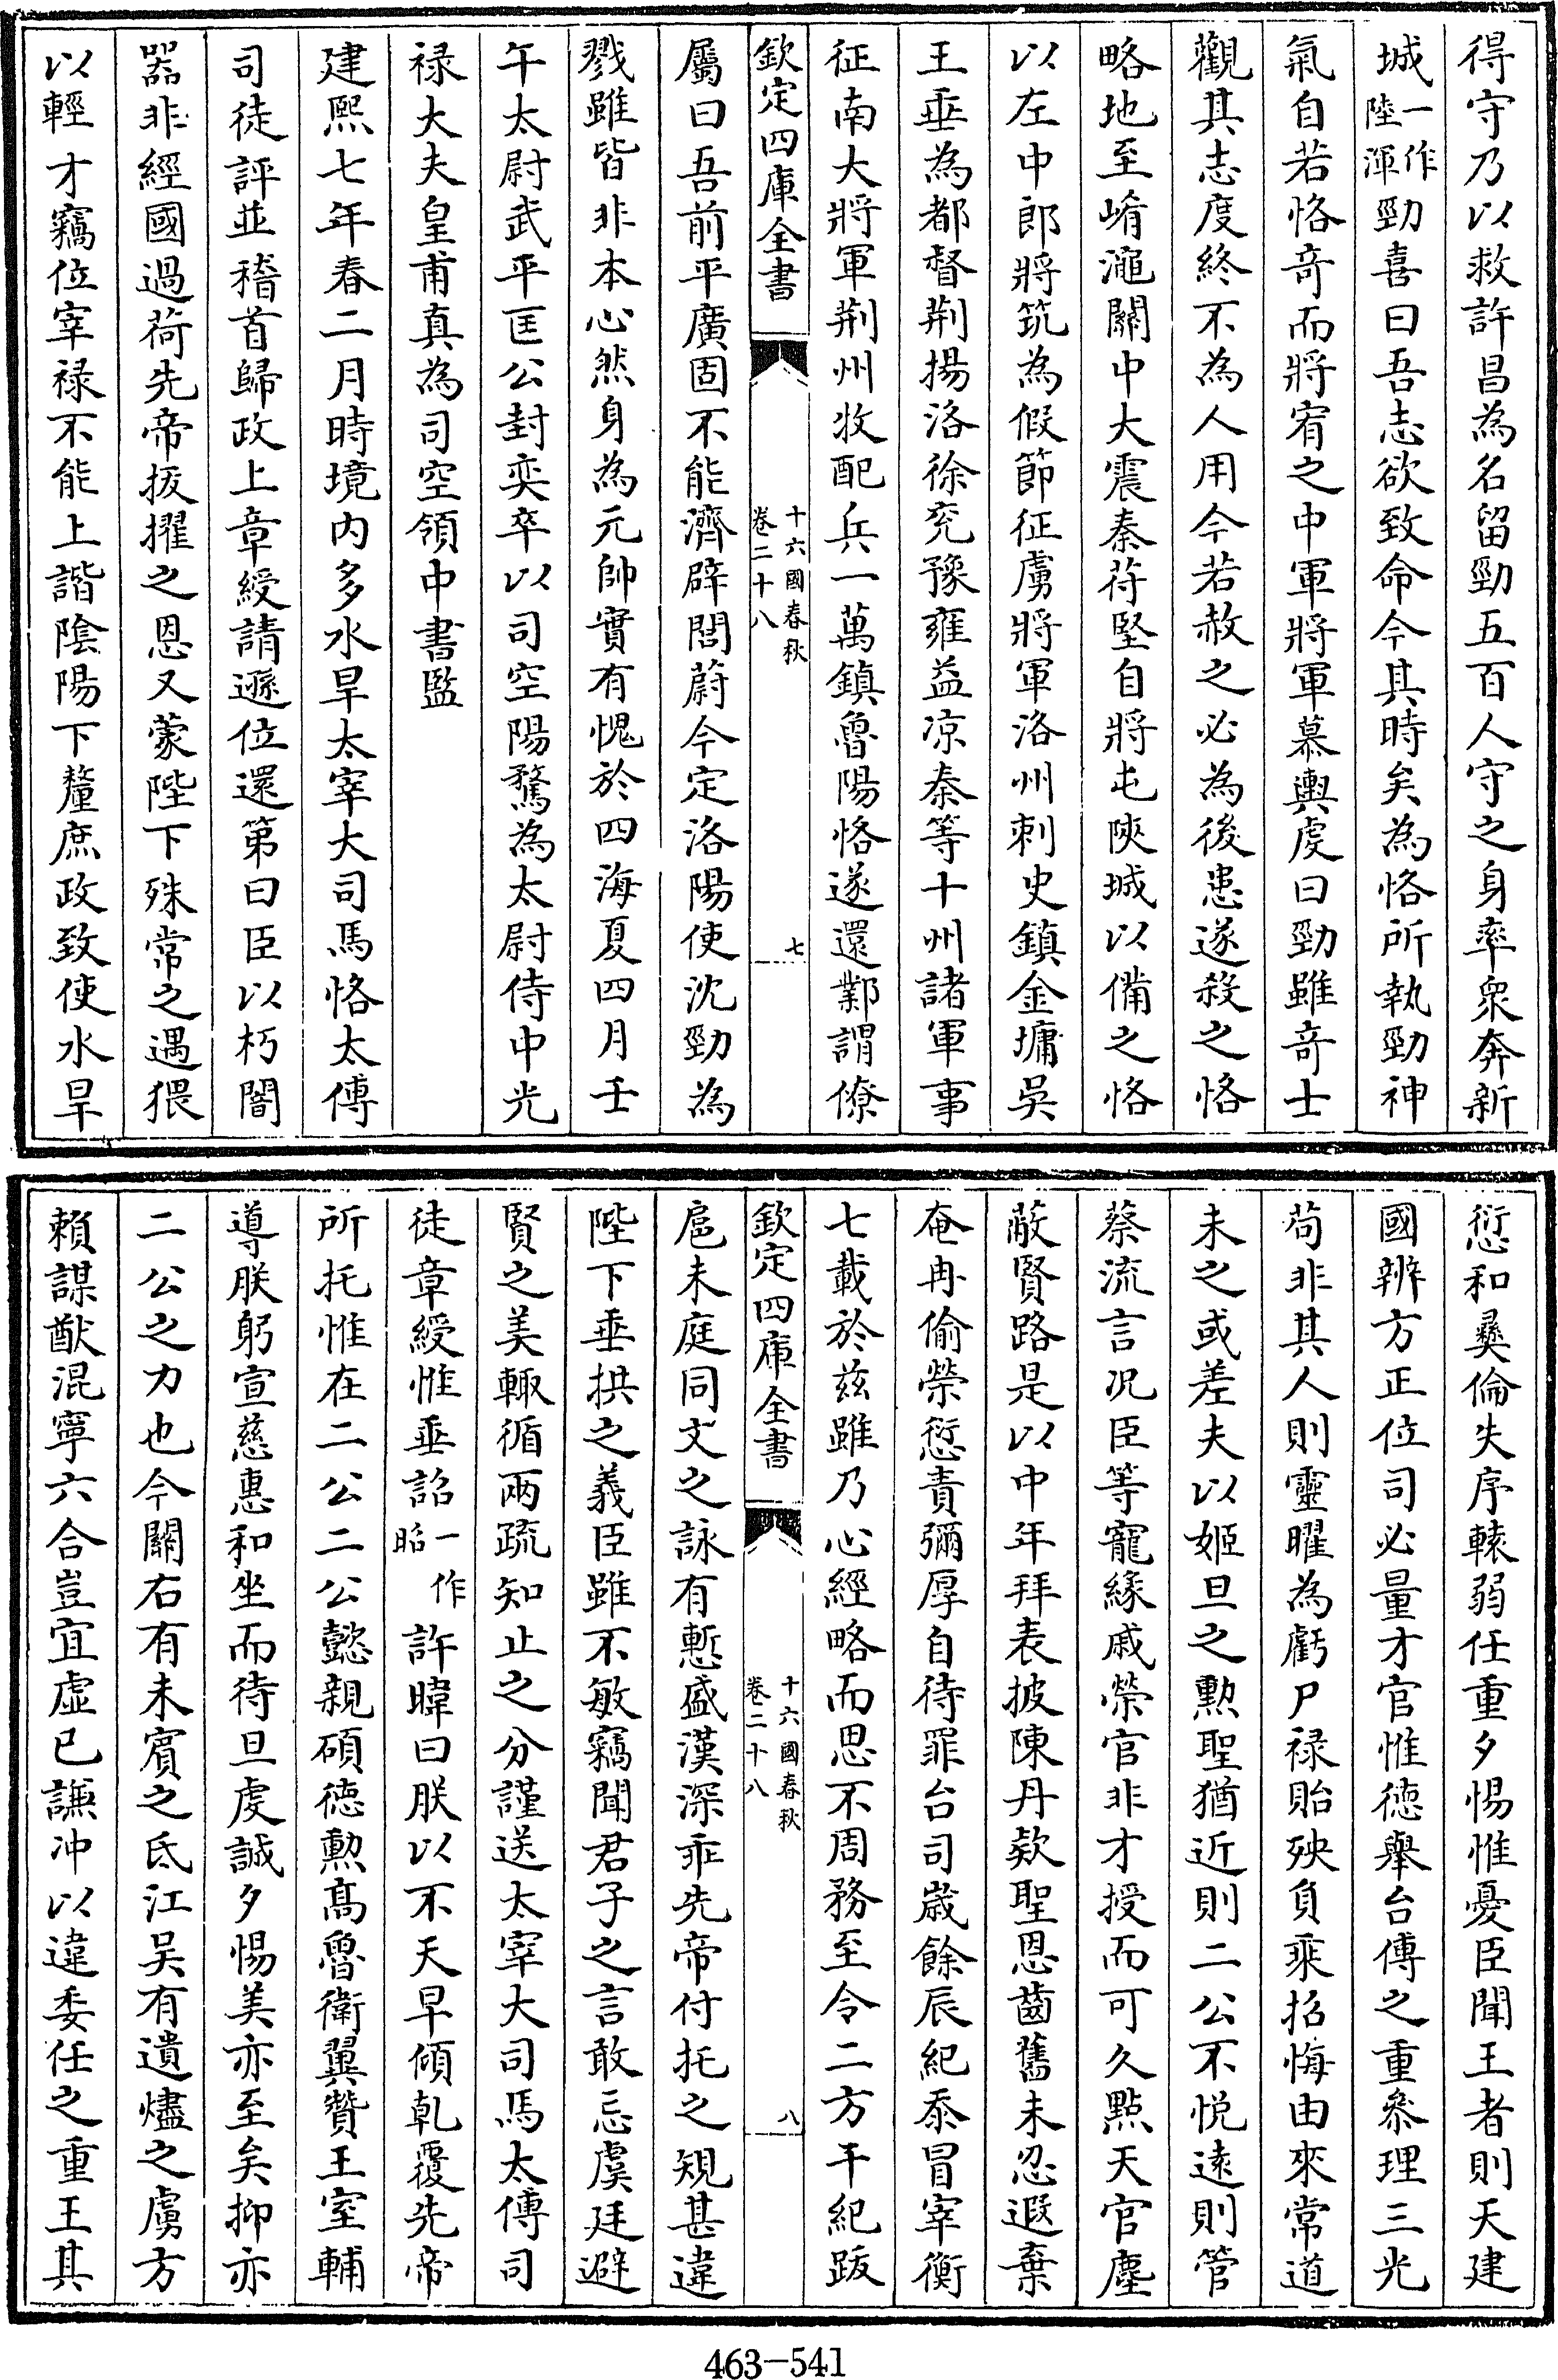 得守乃以救許昌為名留勁五百人守之身率衆奔新
城一作陸渾勁喜曰吾志欲致命今其時矣為恪所執勁神
氣自若恪竒而將宥之中軍將軍慕輿虔曰勁雖竒士
觀其志度終不為人用今若赦之必為後患遂殺之恪
略地至崤澠關中大震秦苻堅自將屯陜城以備之恪
以左中郎將筑為假節征虜將軍洛州刺史鎮金墉吳
王垂為都督荆揚洛徐兖豫雍益凉秦等十州諸軍事
征南大將軍荆州牧配兵一萬鎮魯陽恪遂還鄴謂僚
欽定四庫全書
十六國春秋
卷二十八
七
屬曰吾前平廣固不能濟辟閭蔚今定洛陽使沈勁為
戮雖皆非本心然身為元帥實有愧於四海夏四月壬
午太尉武平匡公封奕卒以司空陽騖為太尉侍中光
禄大夫皇甫真為司空領中書監
建熙七年春二月時境内多水旱太宰大司馬恪太傅
司徒評並稽首歸政上章綬請遜位還第曰臣以朽闇
器非經國過荷先帝拔擢之恩又蒙陛下殊常之遇猥
以輕才竊位宰禄不能上諧隂陽下釐庶政致使水旱
愆和彞倫失序轅弱任重夕惕惟憂臣聞王者則天建
國辨方正位司必量才官惟徳舉台傅之重叅理三光
苟非其人則靈曜為虧尸禄貽殃負乘招悔由來常道
未之或差夫以姬旦之勲聖猶近則二公不悦逺則管
蔡流言况臣等寵緣戚榮官非才授而可久㸃天官塵
蔽賢路是以中年拜表披陳丹欵聖恩齒舊未忍遐棄
奄冉偷榮愆責彌厚自待罪台司嵗餘辰紀忝冒宰衡
七載於兹雖乃心經略而思不周務至令二方干紀跋
欽定四庫全書
十六國春秋
卷二十八
八
扈未庭同文之詠有慙盛漢深乖先帝付托之規甚違
陛下垂拱之義臣雖不敏竊聞君子之言敢忘虞廷避
賢之美輒循兩疏知止之分謹送太宰大司馬太傅司
徒章綬惟垂詔一作昭許暐曰朕以不天早傾乹覆先帝
所托惟在二公二公懿親碩徳勲髙魯衛翼贊王室輔
導朕躬宣慈惠和坐而待旦虔誠夕惕美亦至矣抑亦
二公之力也今關右有未賔之氐江吴有遺燼之虜方
賴謀猷混寧六合豈宜虚已謙冲以違委任之重王其
463-541